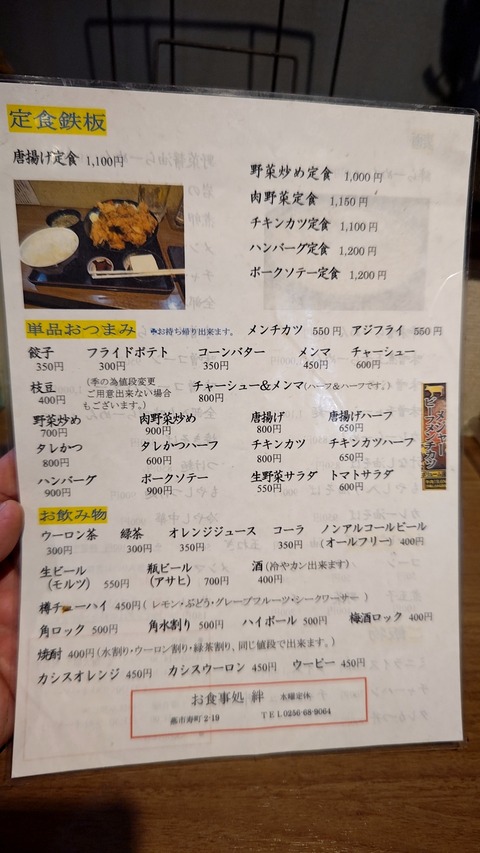 定食鉄板
唐揚げ定食 1,100円
野菜炒め定食 1,000円
肉野菜定食 1,150円
チキンカツ定食 1,100円
ハンバーグ定食 1,200円
ポークソテー定食 1,200円
単品おつまみ お持ち帰り出来ます。 メンチカツ 550円 アジフライ 550円
餃子 フライドポテト コーンバター メンマ チャーシュー
350円 300円 350円 450円 600円
枝豆 (季の為値段変更 チャーシュー&メンマ(ハーフ&ハーフです。)
400円 ご用意出来ない場合 800円
もございます。)
野菜炒め 肉野菜炒め 唐揚げ 唐揚げハーフ
700円 900円 800円 650円
タレかつ タレかつハーフ チキンカツ チキンカツハーフ
800円 600円 800円 650円
ハンバーグ ポークソテー 生野菜サラダ トマトサラダ
900円 900円 550円 600円
メジャー
ビーフメンチカツ
お飲み物
ウーロン茶 緑茶 オレンジジュース コーラ ノンアルコールビール
300円 300円 350円 350円 (オールフリー) 400円
生ビール 瓶ビール 酒(冷やカン出来ます)
(モルツ) 550円 (アサヒ) 700円 400円
樽チューハイ 450円(レモン・ぶどう・グレープフルーツ・シークワーサー)
角ロック 500円 角水割り 500円 ハイボール 500円 梅酒ロック 400円
焼酎 400円(水割り・ウーロン割り・緑茶割り、同じ値段で出来ます。)
カシスオレンジ 450円 カシスウーロン 450円 ウービー 450円
お食事処 絆 水曜定休
燕市寿町2-19 TEL0256-68-9064